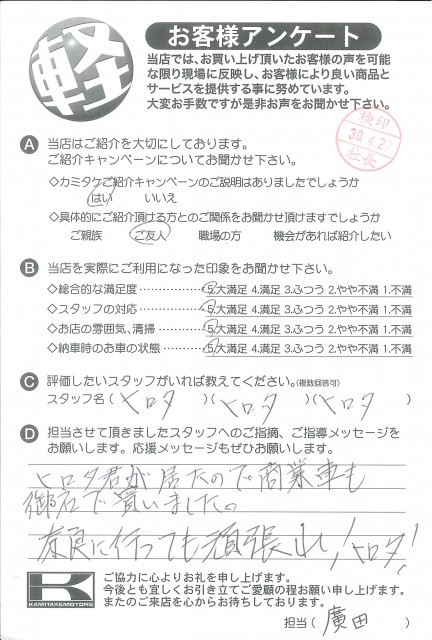 軽
お客様アンケート
当店では、お買い上げ頂いたお客様の声を可能
な限り現場に反映し、お客様により良い商品と
サービスを提供する事に努めています。
大変お手数ですが是非お声をお聞かせ下さい。
検印
30.4.2
社長
A 当店はご紹介を大切にしております。
ご紹介キャンペーンについてお聞かせ下さい。
◇カミタケご紹介キャンペーンのご説明はありましたでしょうか
はい いいえ
◇具体的にご紹介頂ける方とのご関係をお聞かせ頂けますでしょうか
ご親族 ご友人 職場の方 機会があれば紹介したい
B 当店を実際にご利用になった印象をお聞かせ下さい。
◇総合的な満足度……………5.大満足 4.満足 3.ふつう 2.やや不満 1.不満
◇スタッフの対応……………5.大満足 4.満足 3.ふつう 2.やや不満 1.不満
◇お店の雰囲気、清掃………5.大満足 4.満足 3.ふつう 2.やや不満 1.不満
◇納車時のお車の状態………5.大満足 4.満足 3.ふつう 2.やや不満 1.不満
C 評価したいスタッフがいれば教えてください。(複数回答可)
スタッフ名(ヒロタ)(ヒロタ)(ヒロタ)
D 担当させて頂きましたスタッフへのご指摘、ご指導メッセージを
お願いします。応援メッセージもぜひお願いします。
ヒロタ君が居たので商業車も
御店で買いました。
奈良に行っても頑張れ!ヒロタ!
K
KAMITAKEMOTORS
ご協力に心よりお礼を申し上げます。
今後とも宜しくお引き立てご愛顧の程お願い申し上げます。
またのご来店を心からお待ちしております。
担当(廣田)